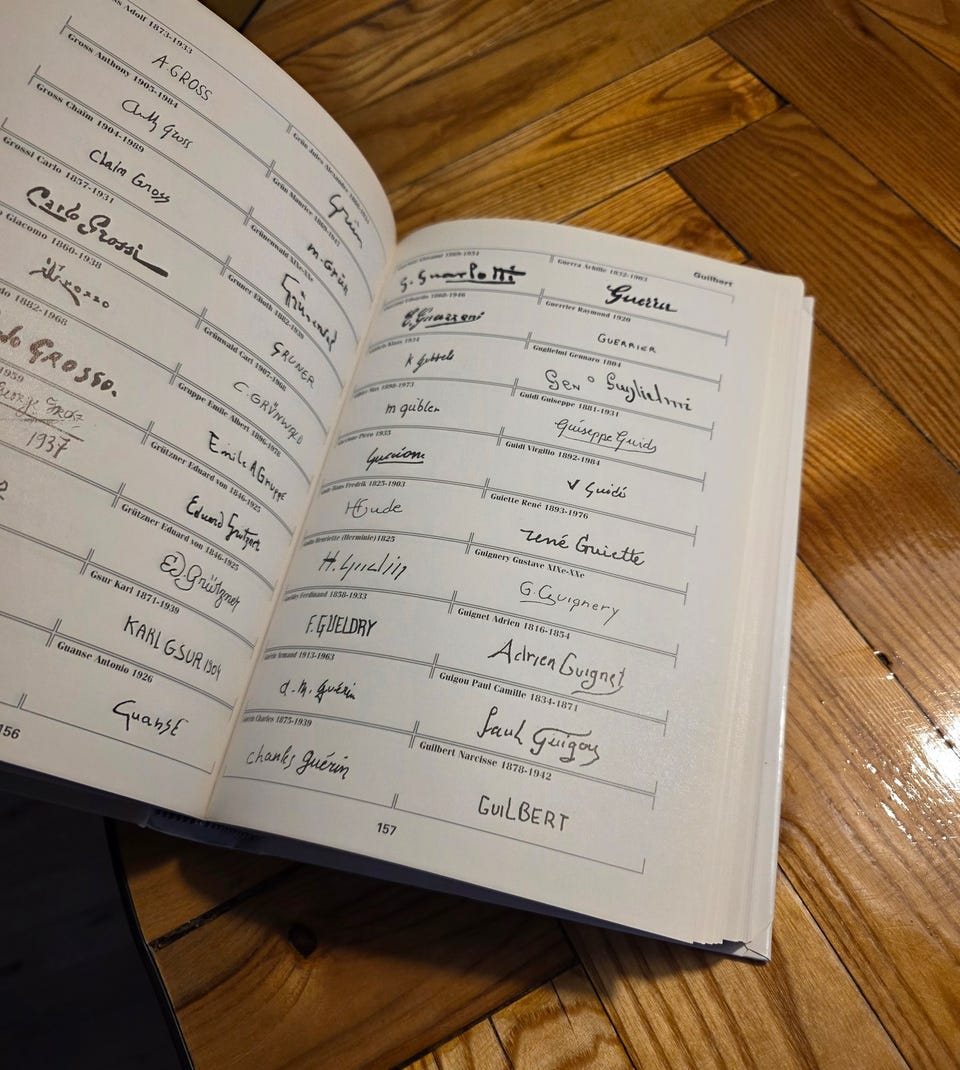 Adolf 1873-1933
A. GROSS
Gross Anthony 1905-1984
Gross
Gross Chaim 1904-1989
Chaim Gross
Grossi Carlo 1857-1931
Carlo Grossi
Giacomo 1860-1938
1882-1968
GROSSO.
1959
1937
156
Grün Jules Alexandre
Grün
Grün Maurice 1869-1947
M. Grün
Grünenwald XIXe-XXe
Gruner Elioth 1882-1939
GRUNER
Grünwald Carl 1907-1968
C. GRÜNWALD
Gruppe Emile Albert 1896-1978
Emile A Gruppe
Grützner Eduard von 1846-1925
Eduard Grützner
Grützner Eduard von 1846-1925
Ed. Grützner
Gsur Karl 1871-1939
KARL GSUR 1904
Guanse Antonio 1926
GuansE
Guilbert
G. Guarlotti
1860-1946
1934
K Gebbels
Max 1898-1973
m gübler
Piero 1935
Hans Fredrik 1825-1903
HGude
Henriette (Herminie) 1825
Ferdinand 1858-1933
F. GUELDRY
Armand 1913-1963
Guérin
Charles 1875-1939
charles guérin
157
Guerra Achille 1832-1903
Guerra
Guerrier Raymond 1920
GUERRIER
Guglielmi Gennaro 1804
Genº Guglielmi
Guidi Guiseppe 1881-1931
Guiseppe Guidi
Guidi Virgilio 1892-1984
V Guidi
Guiette René 1893-1976
rené Guiette
Guignery Gustave XIXe-XXe
G. Guignery
Guignet Adrien 1816-1854
Adrien Guignet
Guigou Paul Camille 1834-1871
Paul Guigou
Guilbert Narcisse 1878-1942
GUILBERT